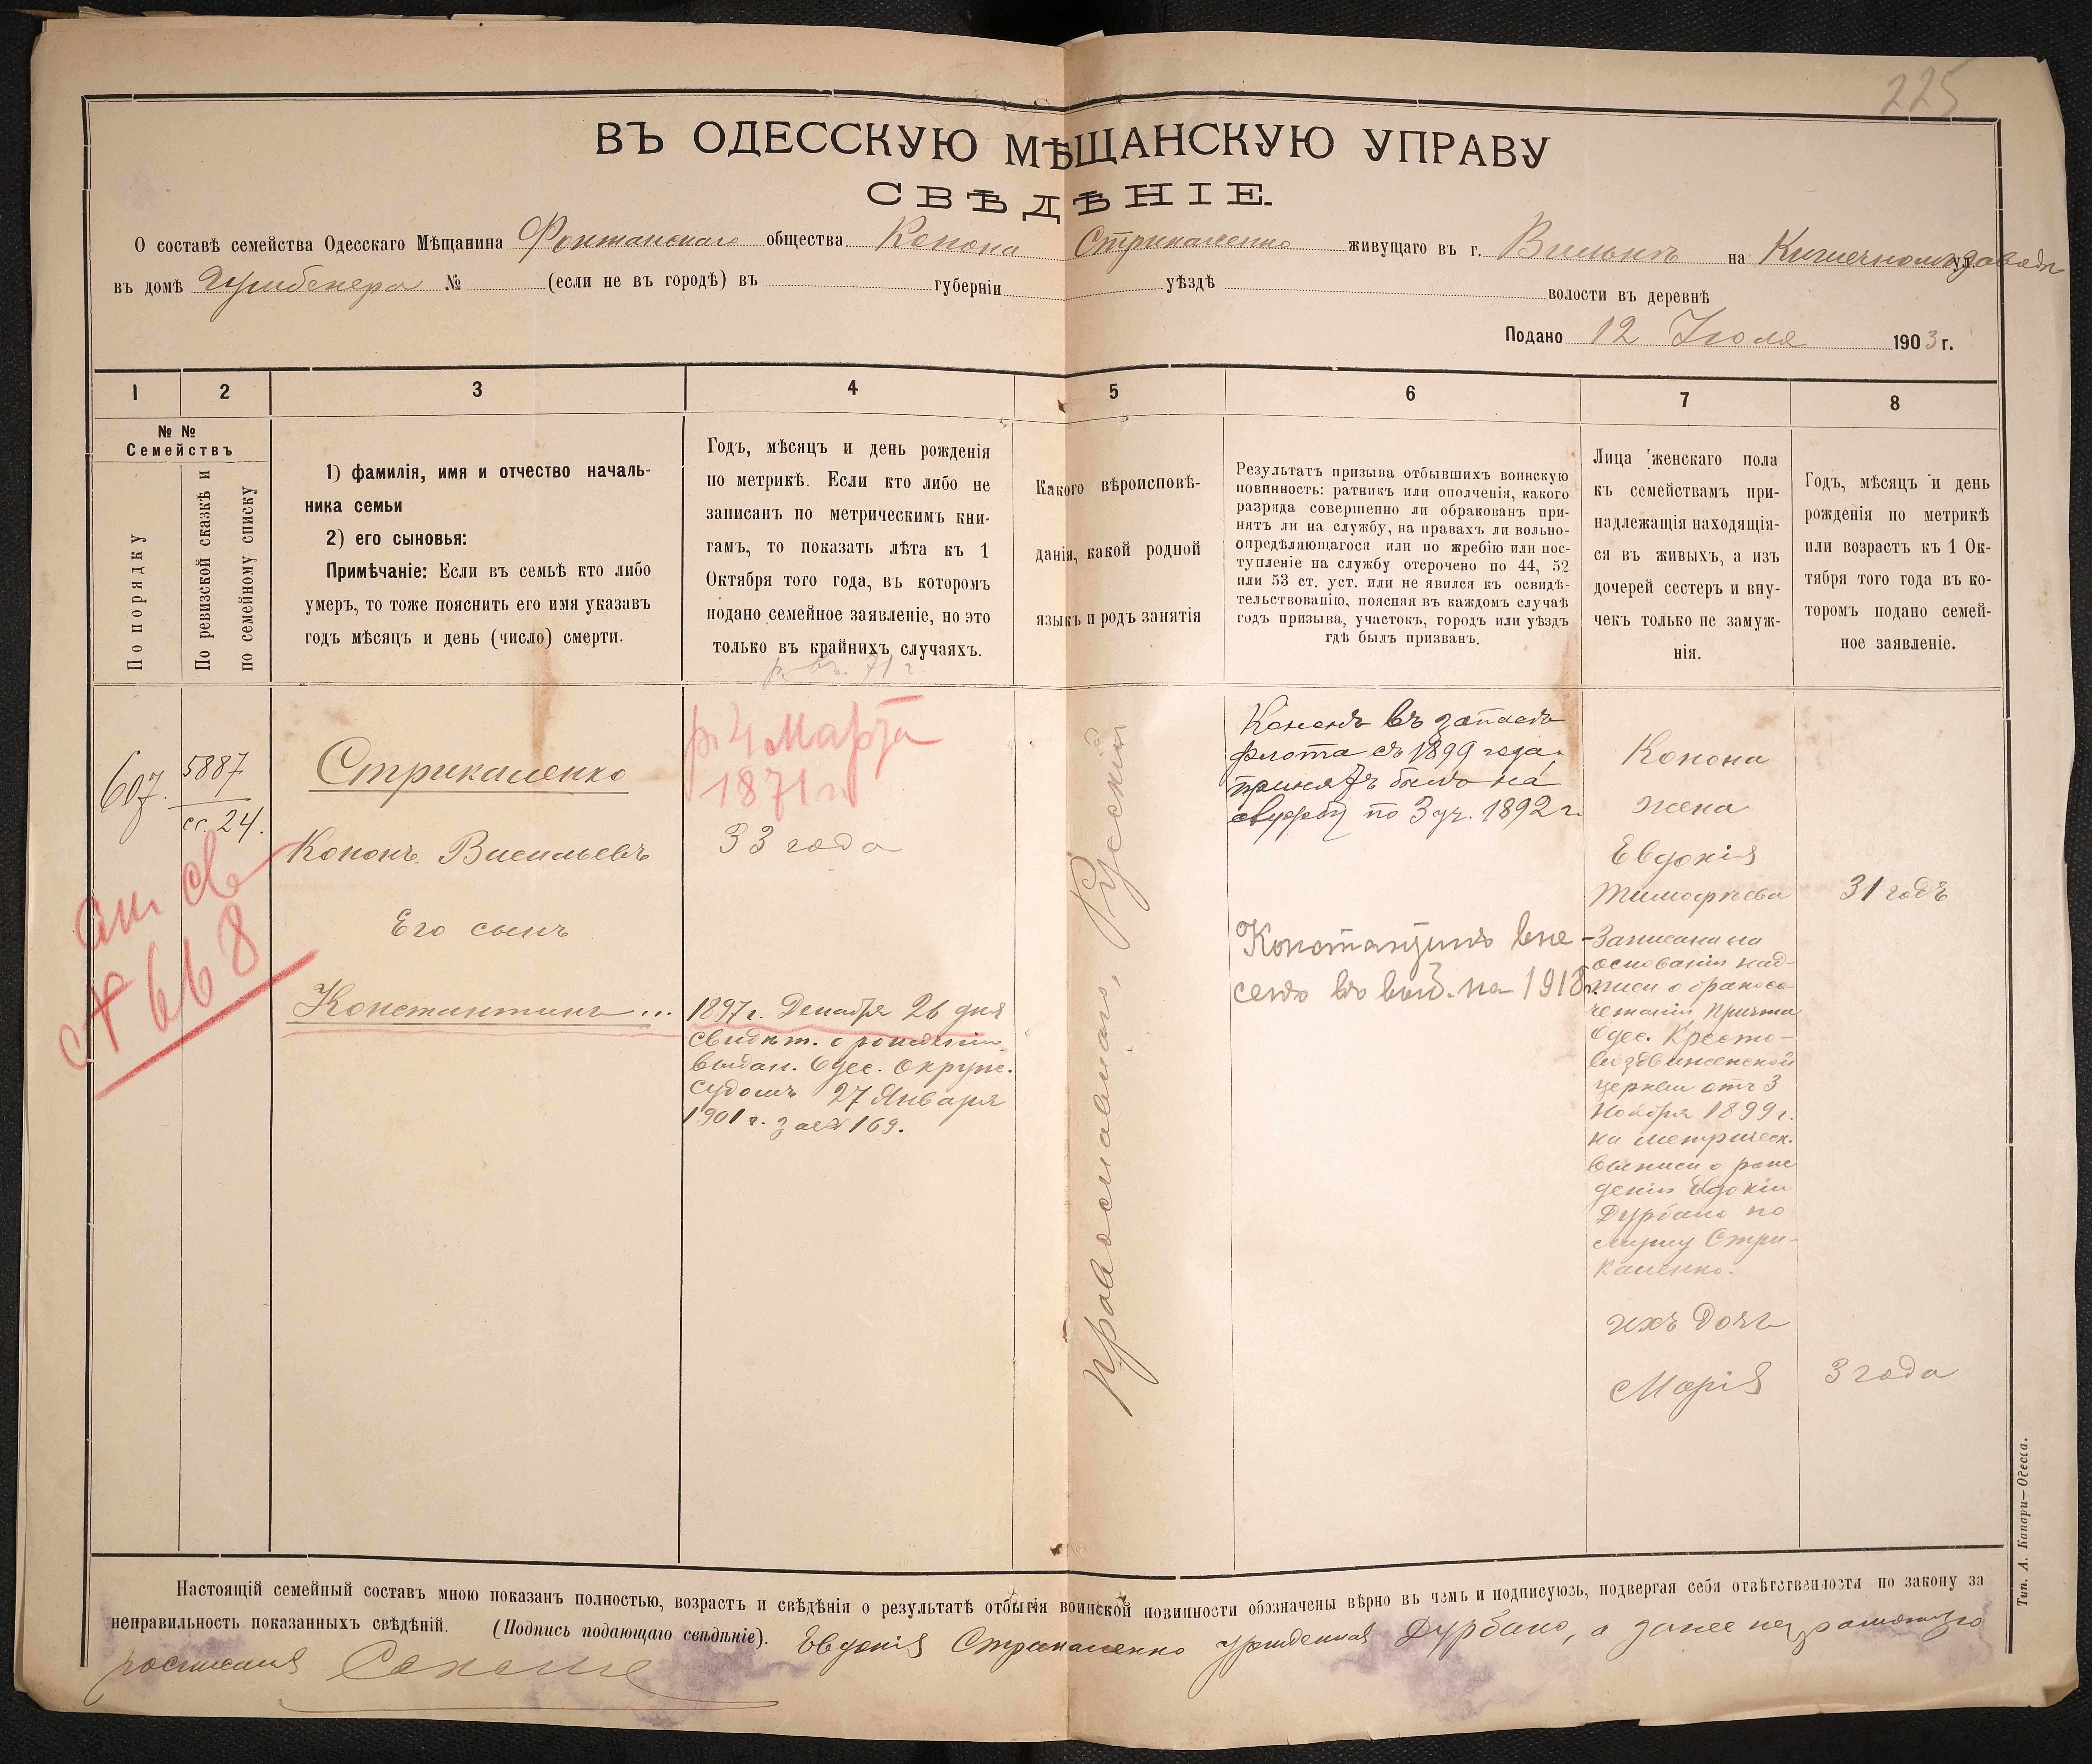 225
ВЪ ОДЕССКУЮ МѢЩАНСКУЮ УПРАВУ
СВѢДѢНІЕ.
О составѣ семейства Одесскаго Мѣщанина Фонтанскаго общества Конона Стрикаленко живущаго въ г. Вильнѣ на Кишечномъ заводѣ ул.
въ домѣ № (если не въ городѣ) въ губерніи уѣздѣ волости въ деревнѣ
Подано 12 Іюля 1903 г.
1 2 3 4 5 6 7 8
№ № Семействъ
По порядку
По ревизской сказкѣ и по семейному списку
1) фамилія, имя и отчество началь-
ника семьи
2) его сыновья:
Примѣчаніе: Если въ семьѣ кто либо
умеръ, то тоже пояснить его имя указавъ
годъ мѣсяцъ и день (число) смерти.
Годъ, мѣсяцъ и день рожденія
по метрикѣ. Если кто либо не
записанъ по метрическимъ кни-
гамъ, то показать лѣта къ 1
Октября того года, въ которомъ
подано семейное заявленіе, но это
только въ крайнихъ случаяхъ.
Какого вѣроисповѣ-
данія, какой родной
языкъ и родъ занятія
Результатъ призыва отбывшихъ воинскую
повинность: ратникъ или ополченія, какого
разряда совершенно ли обракованъ при-
нятъ ли на службу, на правахъ ли вольно-
опредѣляющагося или по жребію или пос-
тупленіе на службу отсрочено по 44, 52
или 53 ст. уст. или не явился къ освидѣ-
тельствованію, поясняя въ каждомъ случаѣ
годъ призыва, участокъ, городъ или уѣздъ
гдѣ былъ призванъ.
Лица женскаго пола
къ семействамъ при-
надлежащія находящія-
ся въ живыхъ, а изъ
дочерей сестеръ и вну-
чекъ только не замуж-
нія.
Годъ, мѣсяцъ и день
рожденія по метрикѣ
или возрастъ къ 1 Ок-
тября того года въ ко-
торомъ подано семей-
ное заявленіе.
р. въ 71 г.
607.
5887
сс. 24.
Стрикаленко
Кононъ Васильевъ
Его сынъ
Константинъ...
№ 668
р. 4 Марта
1871 г.
33 года
1897 г. Декабря 26 дня
свидѣт. о рожденіи
выдан. Одес. Окруж.
Судомъ 27 Января
1901 г. за № 169.
Православнаго, Русскій
Кононъ въ запасѣ
флота съ 1899 года,
принятъ былъ на
службу по 3 уч. 1892 г.
Константинъ вне-
сенъ въ на 1918 г.
Конона
жена
Евдокія
Тимофѣева
31 годъ
Записана на
основаніи над-
писи о бракосо-
четаніи Причта
Одес. Кресто-
воздвиженской
церкви отъ 3
Ноября 1899 г.
на метрическ.
выписи о рож
деніи Евдокіи
Дурбано по
мужу Стри-
каленко.
ихъ дочь
Марія
3 года
Настоящій семейный составъ мною показанъ полностью, возрастъ и свѣдѣнія о результатѣ отбытія воинской повинности обозначены вѣрно въ чемъ и подписуюсь, подвергая себя отвѣтственности по закону за
неправильность показанныхъ свѣдѣній. (Подпись подающаго свѣдѣніе). Евдокія Стрикаленко урожденная Дурбано, а за нее неграмотную
росписался
Тип. А. Капари—Одесса.